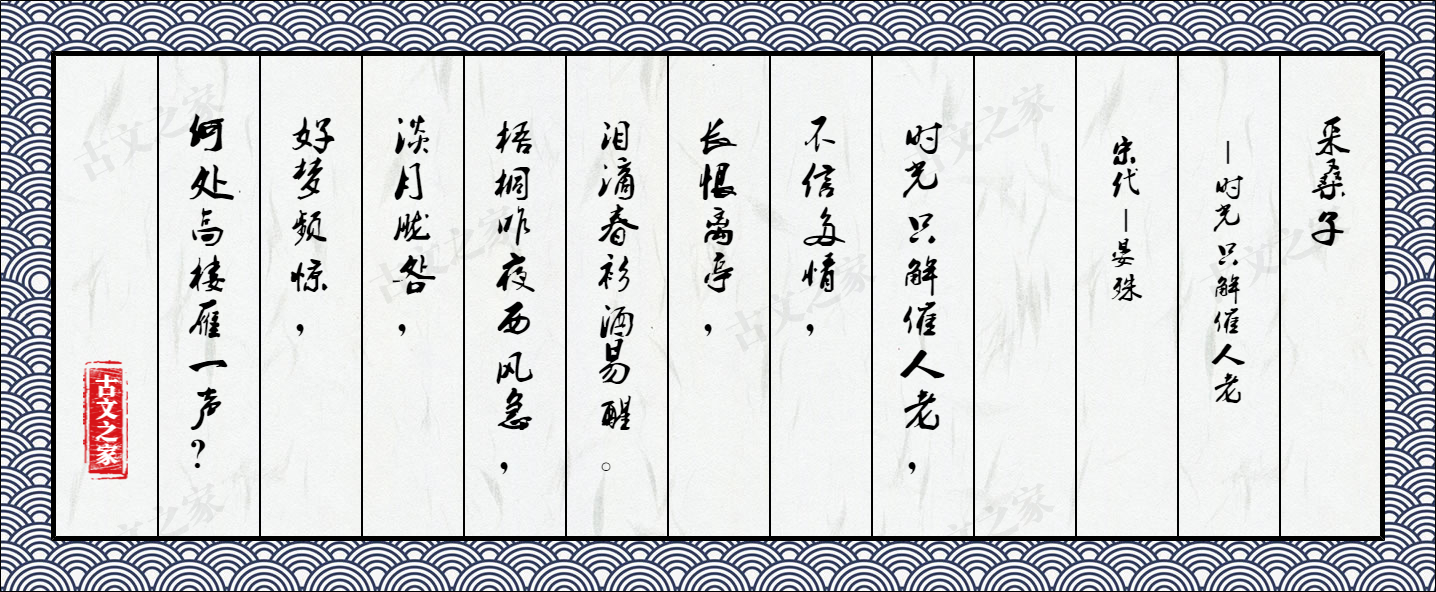 采桑子
—时光只解催人老
宋代—晏殊
时光只解催人老，
不信多情，
长恨离亭，
泪滴春衫酒易醒。
梧桐昨夜西风急，
淡月胧明，
好梦频惊，
何处高楼雁一声？
古文之家